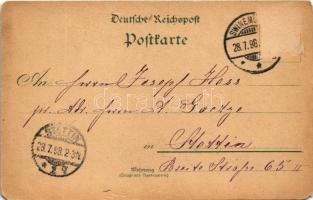 Deutsche Reichspost
Postkarte
SWINEM
28.7.98
An Herrn Josepf Hess
pr. Adr. Herrn A. Goetze
STETTIN
29.7.98. 2-3N.
in Stettin
Wohnung
Breite Straße 65 II